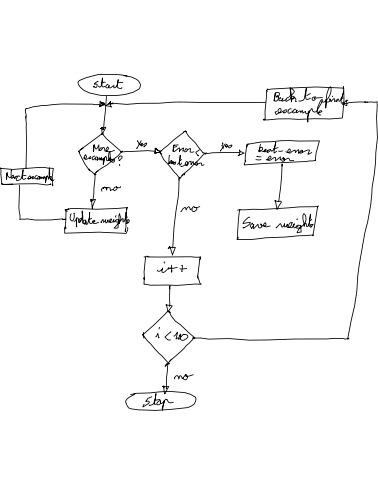 Start
Back to first
example
More
examples?
yes
Error <
best error
yes
best-error
= error
Next example
no
Update weights
no
Save weights
i++
i < 10
no
Stop